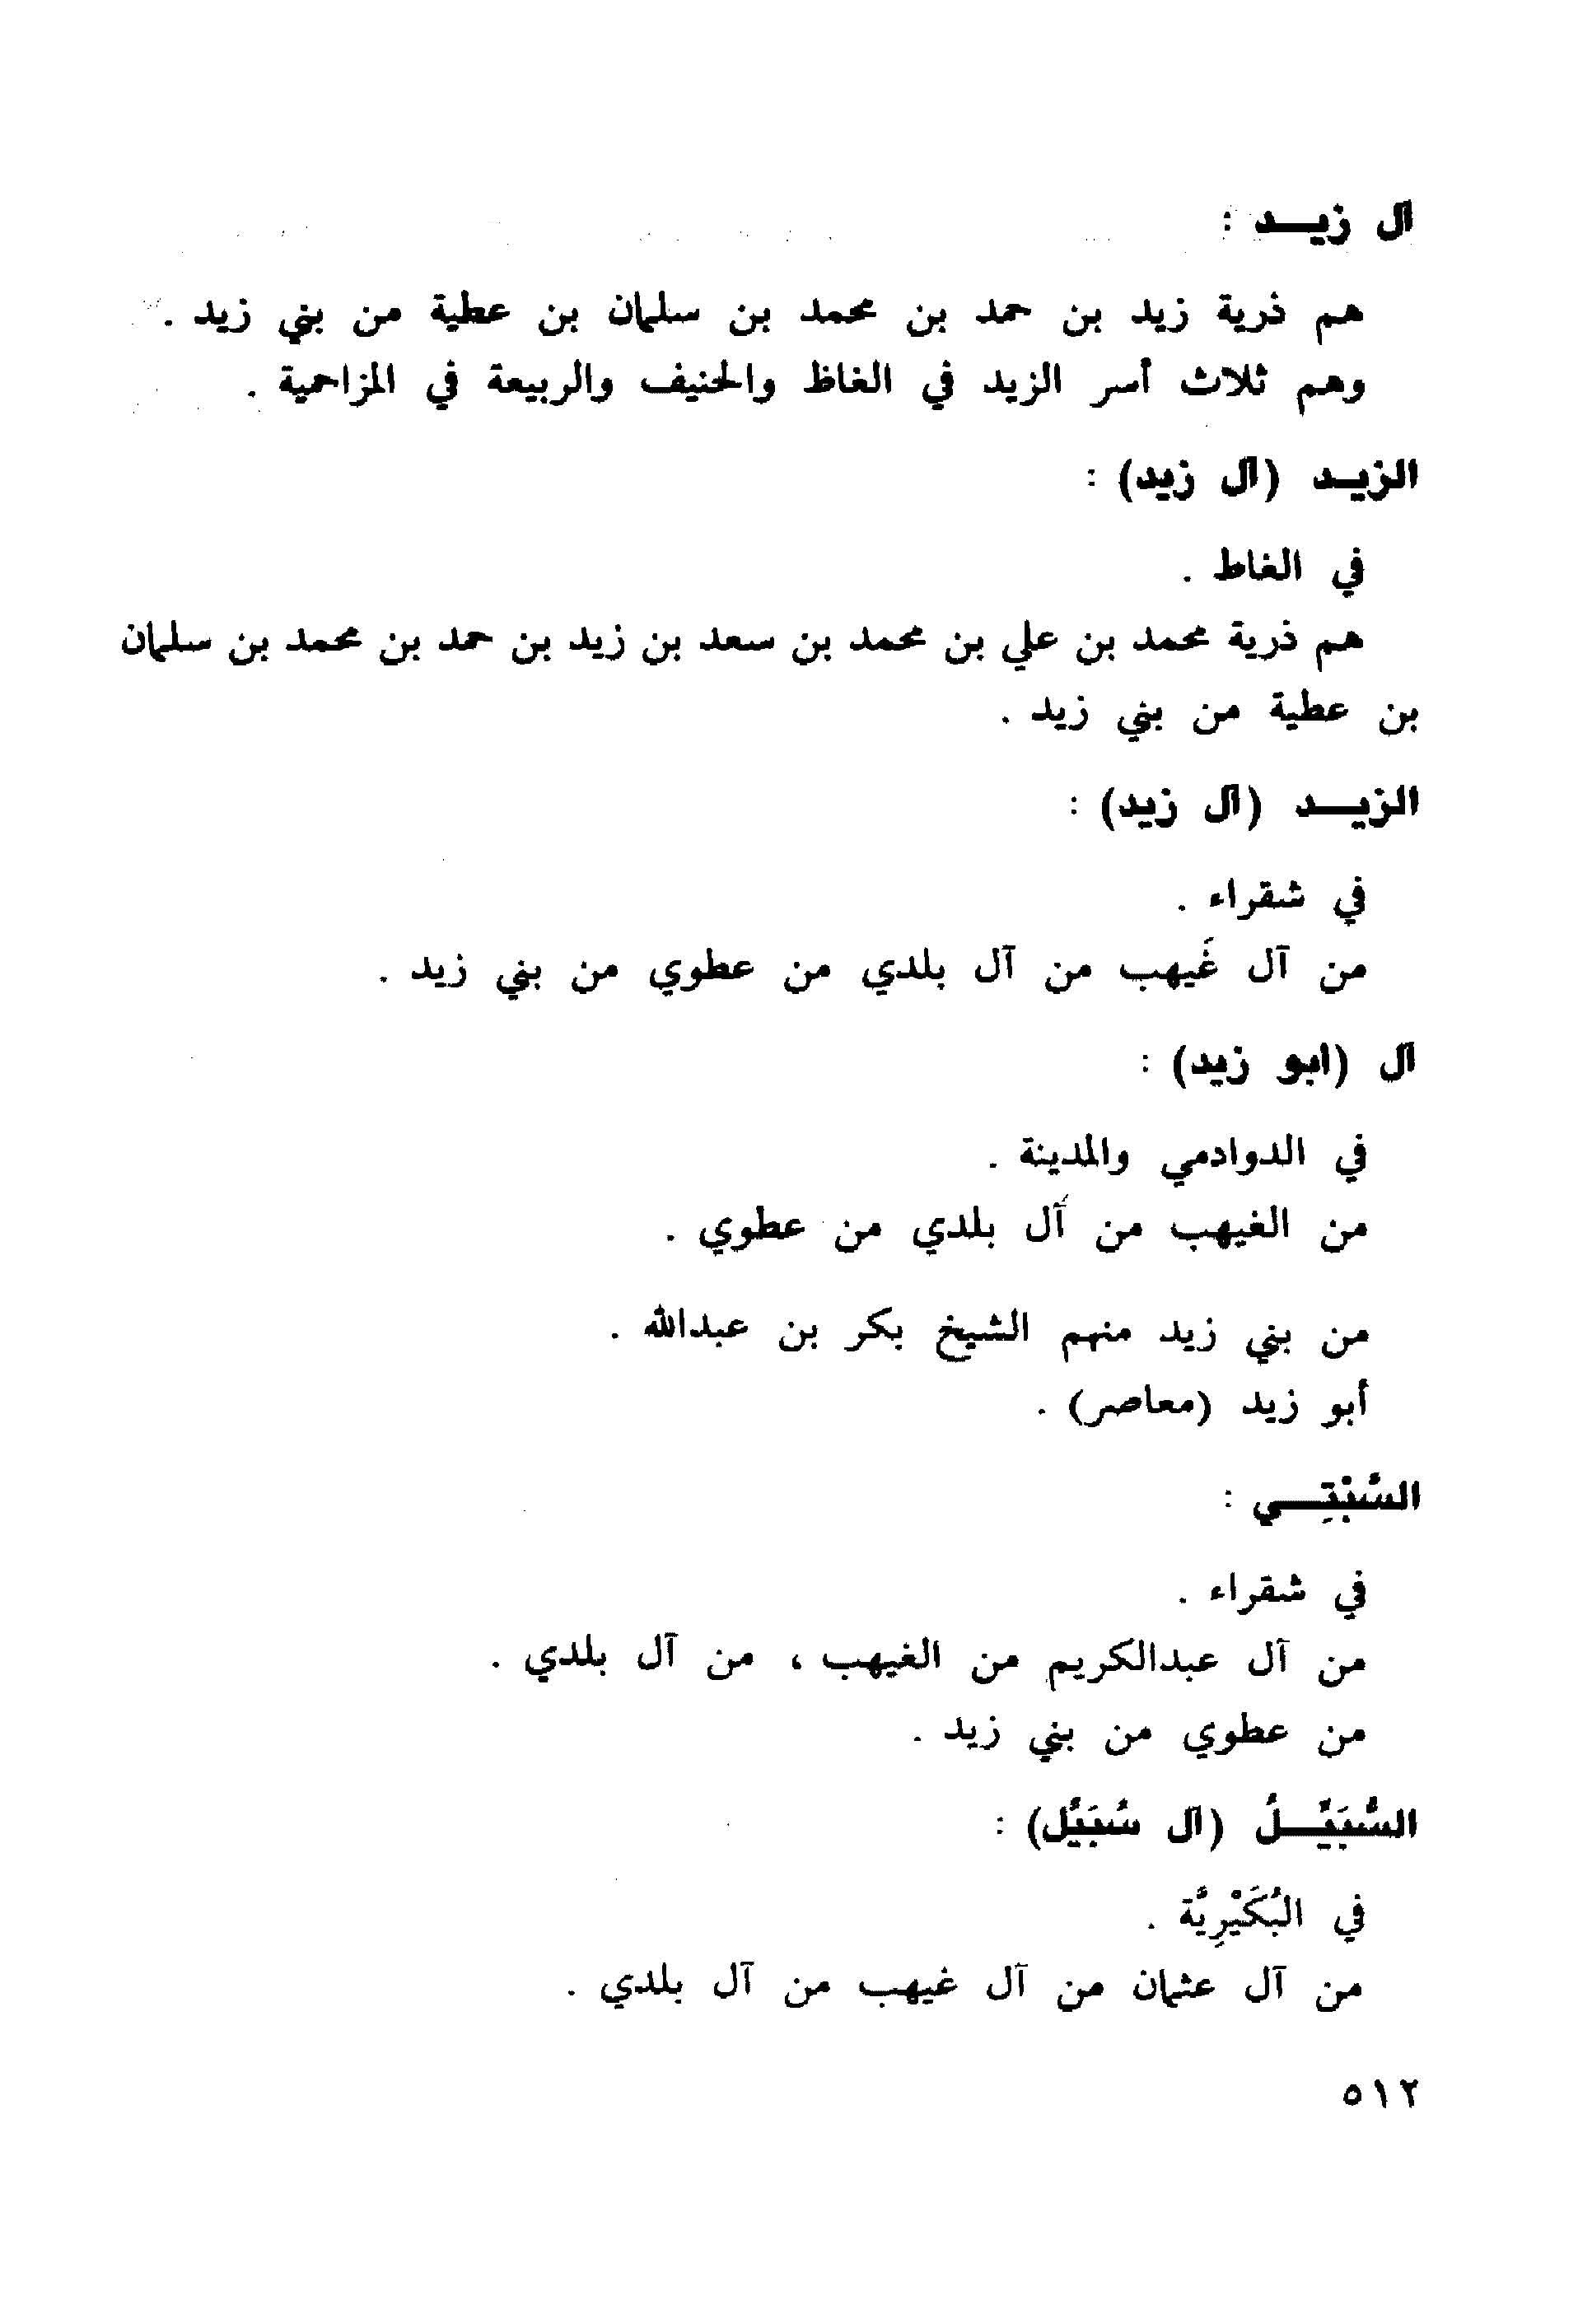 آل زيــد :
هم ذرية زيد بن حمد بن محمد بن سلمان بن عطية من بني زيد .
وهم ثلاث أسر الزيد في الغاظ والحنيف والربيعة في المزاحمية .
الزيـد (آل زيد) :
في الغاط .
هم ذرية محمد بن علي بن محمد بن سعد بن زيد بن حمد بن محمد بن سلمان
بن عطية من بني زيد .
الزيــد (آل زيد) :
في شقراء .
من آل غَيهب من آل بلدي من عطوي من بني زيد .
آل (ابو زيد) :
في الدوادمي والمدينة .
من الغيهب من آل بلدي من عطوي .
من بني زيد منهم الشيخ بكر بن عبدالله .
أبو زيد (معاصر) .
السُّبْتِــي :
في شقراء .
من آل عبدالكريم من الغيهب ، من آل بلدي .
من عطوي من بني زيد .
السُّبَيِّــلُ (آل سُبَيِّل) :
في البُكَيْرِيَّة .
من آل عثمان من آل غيهب من آل بلدي .
٥١٢